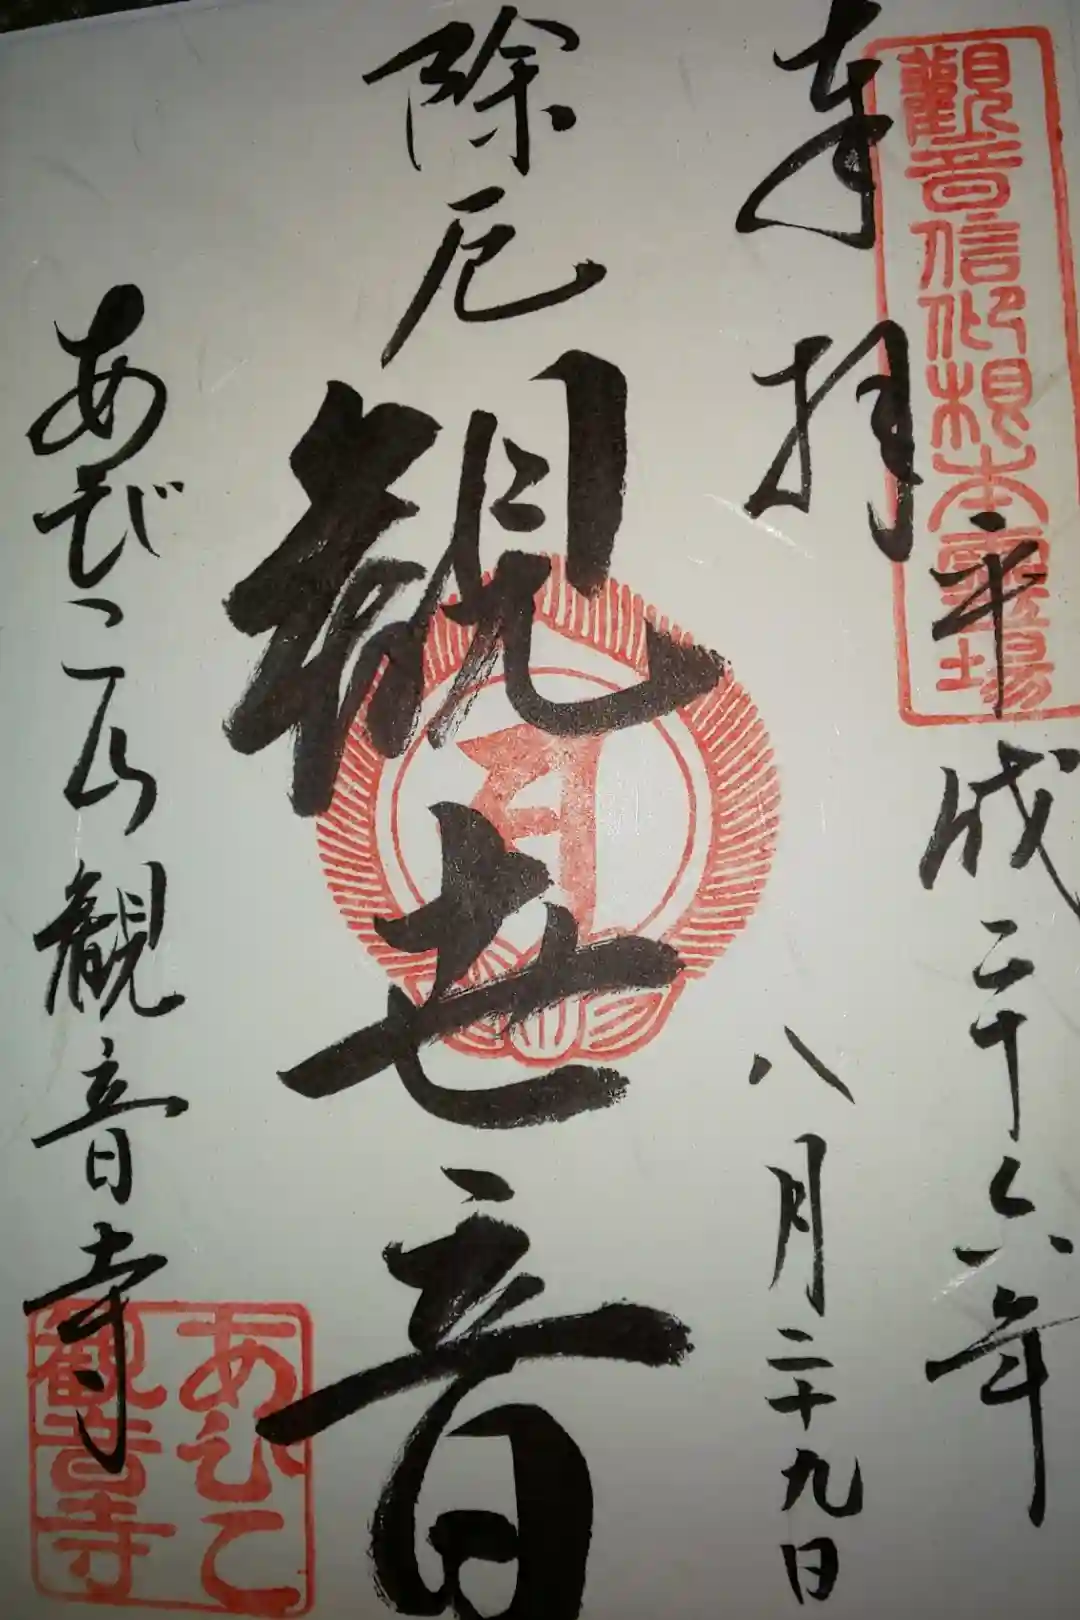 観音信仰根本霊場
奉拝
平成二十六年
八月二十九日
除厄
観世音
あびこ山観音寺
あびこ
観音寺